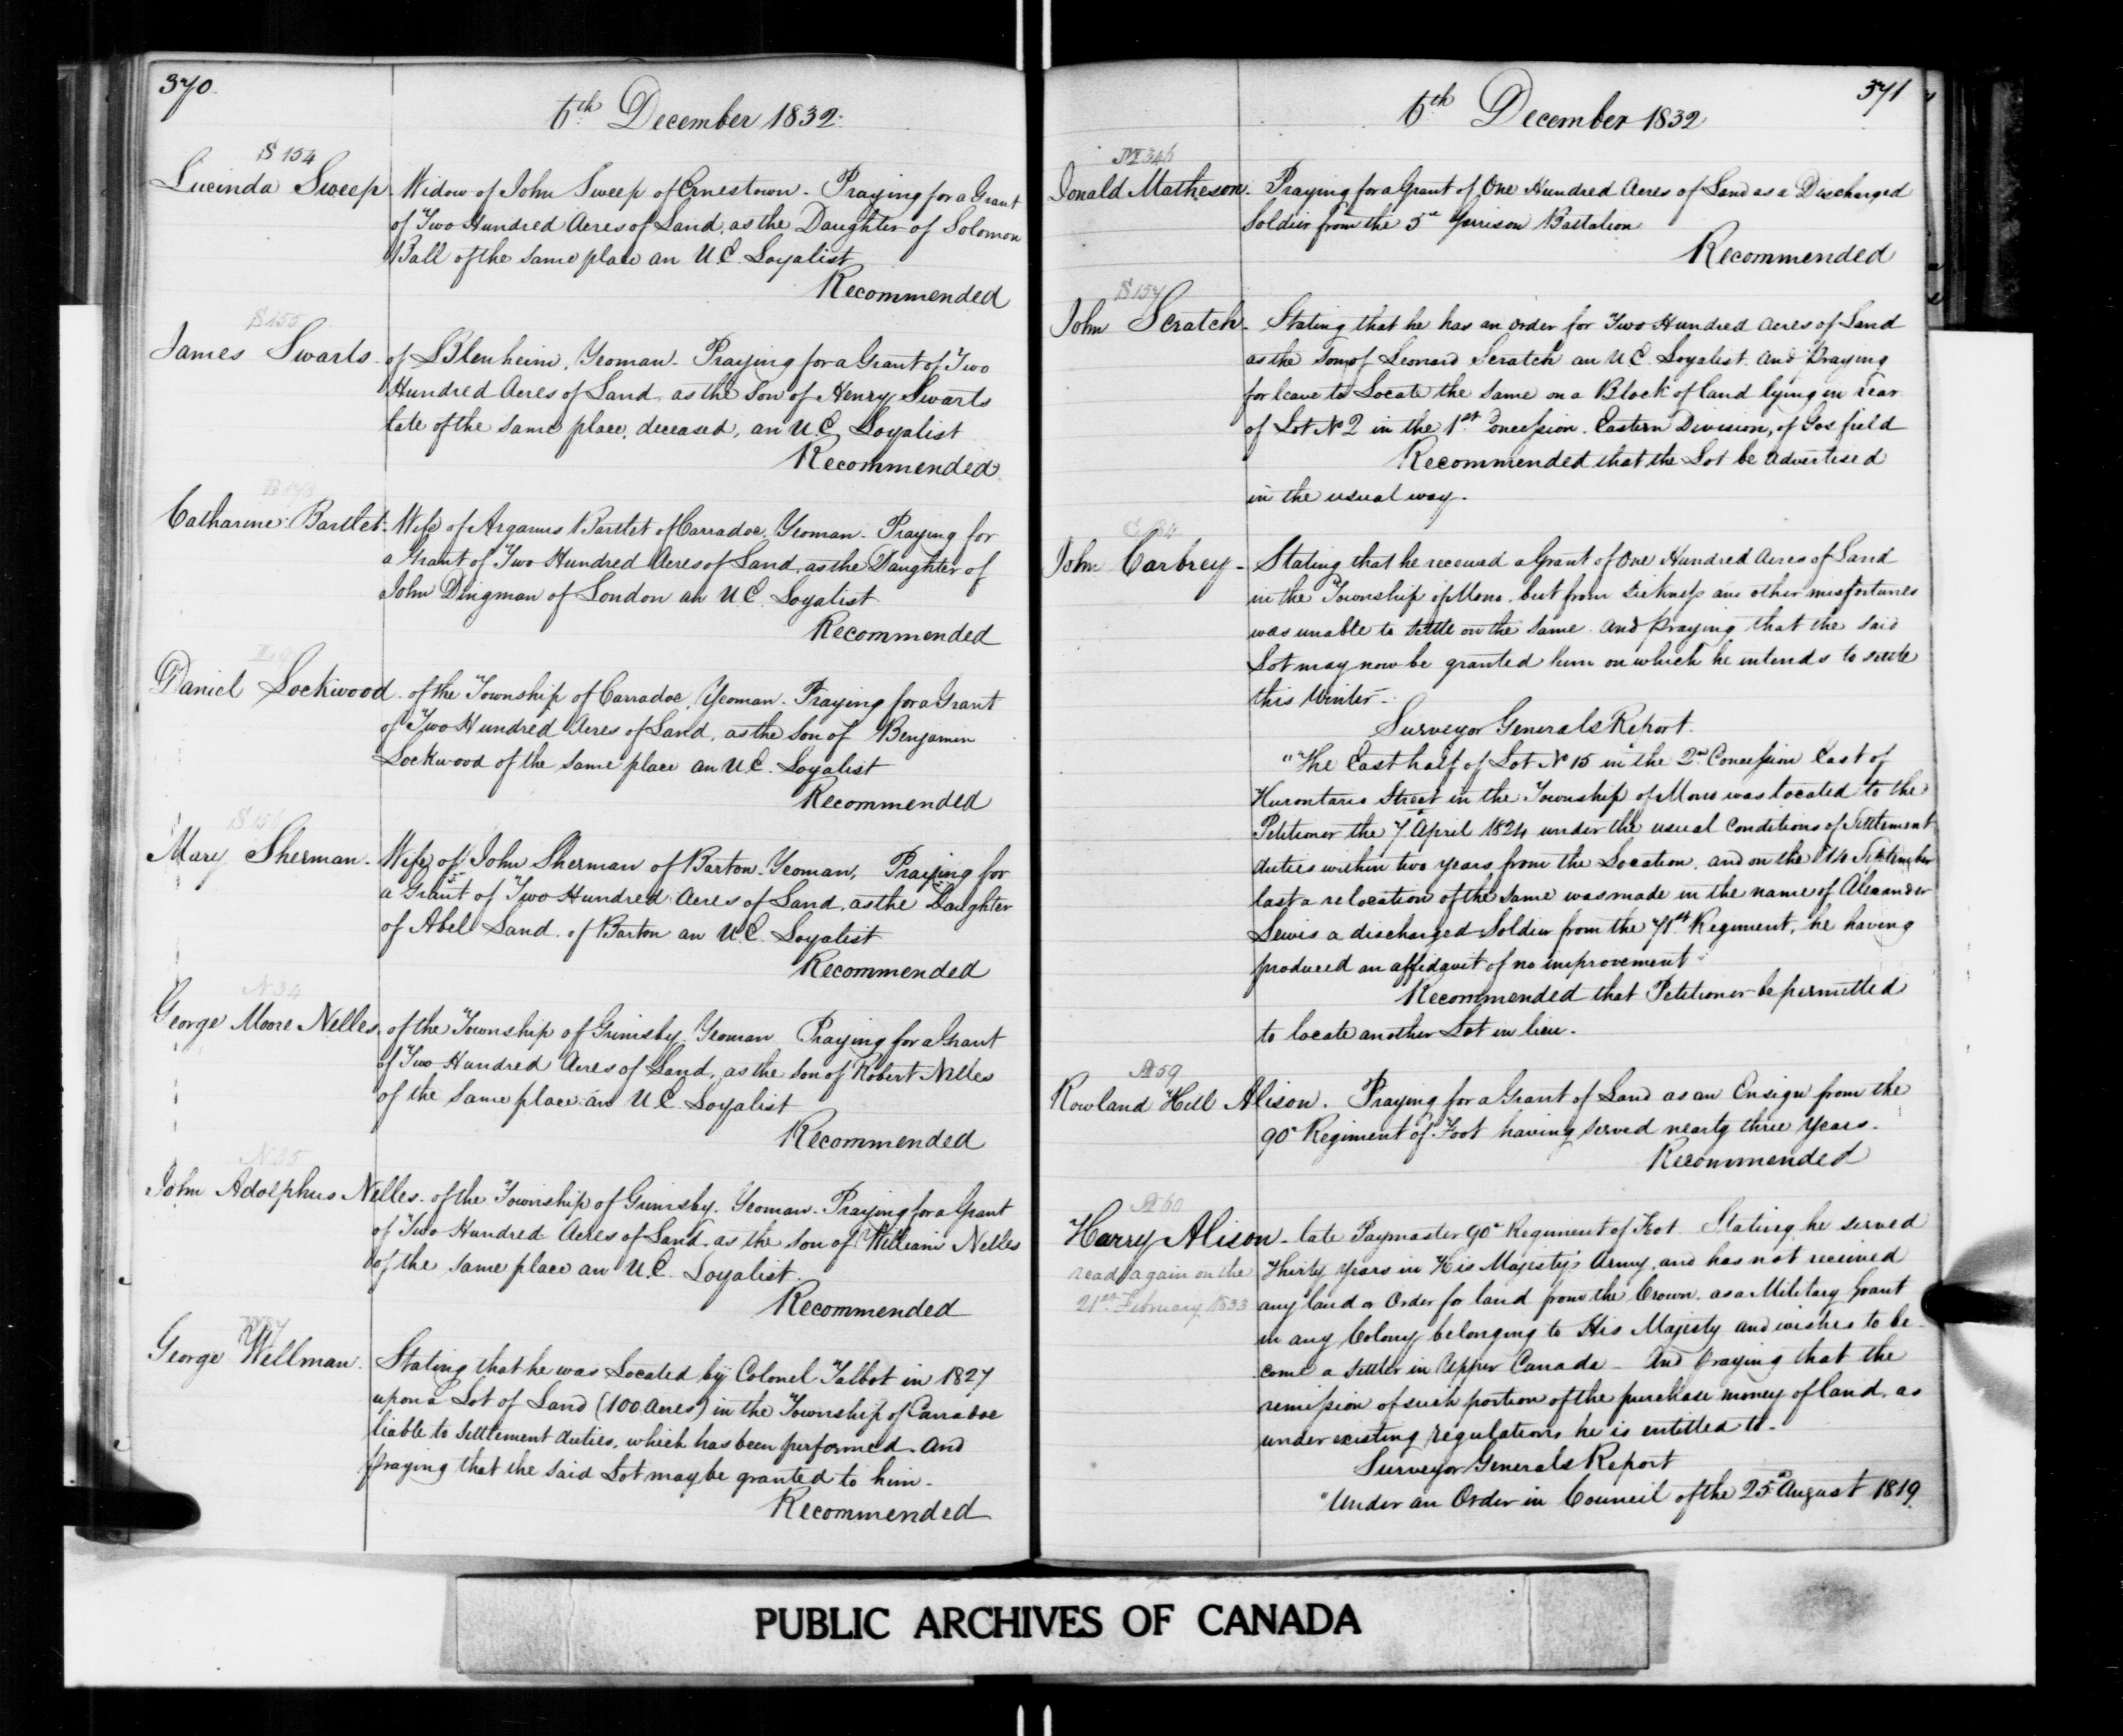 370.
6th December 1832.
S 154
Lucinda Sweep. Widow of John Sweep of Ernestown. Praying for a Grant
of Two Hundred Acres of Land, as the Daughter of Solomon
Ball of the same place an U.E. Loyalist
Recommended
S 155
James Swarts. of Blenheim, Yeoman. Praying for a Grant of Two
Hundred Acres of Land, as the Son of Henry Swarts
late of the same place, deceased, an U.E. Loyalist
Recommended.
Catharine Bartlet. Wife of Argamus Bartlet of Carradoc. Yeoman. Praying for
a Grant of Two Hundred Acres of Land, as the Daughter of
John Dingman of London an U.E. Loyalist
Recommended
Daniel Lockwood. of the Township of Carradoc, Yeoman. Praying for a Grant
of Two Hundred Acres of Land, as the Son of Benjamin
Lockwood of the same place an U.E. Loyalist
Recommended
S 156
Mary Sherman. Wife of John Sherman of Barton. Yeoman, Praying for
a Grant of Two Hundred Acres of Land, as the Daughter
of Abel Land of Barton an U.E. Loyalist
Recommended
N 34
George Moore Nelles. of the Township of Grimsby. Yeoman Praying for a Grant
of Two Hundred Acres of Land, as the Son of Robert Nelles
of the same place an U.E. Loyalist
Recommended
N 35
John Adolphus Nelles. of the Township of Grimsby. Yeoman. Praying for a Grant
of Two Hundred Acres of Land as the Son of William Nelles
of the same place an U.E. Loyalist.
Recommended
George Wellman. Stating that he was Located by Colonel Talbot in 1827
upon a Lot of Land (100 Acres) in the Township of Carradoc
liable to Settlement duties, which has been performed. And
praying that the said Lot may be granted to him.
Recommended
371
6th December 1832
M 346
Donald Matheson. Praying for a Grant of One Hundred Acres of Land as a Discharged
Soldier from the 5th Garrison Battalion
Recommended
S 157
John Scratch. Stating that he has an order for Two Hundred Acres of Land
as the Son of Leonard Scratch an U.E. Loyalist. And Praying
for leave to Locate the same on a Block of land lying in rear
of Lot No 2 in the 1st Concession. Eastern Division, of Gosfield
Recommended that the Lot be advertised
in the usual way.
C 184
John Carbrey - Stating that he received a Grant of One Hundred Acres of Land
in the Township of Mono. but from sickness and other misfortunes
was unable to settle on the same. And praying that the said
Lot may now be granted him on which he intends to settle
this Winter -
Surveyor Generals Report.
"The East half of Lot No 15 in the 2nd Concession East of
Hurontario Street in the Township of Mono was located to the
Petitioner the 7 April 1824 under the usual conditions of Settlement
duties within two years from the Location, and on the 14 September
last a relocation of the same was made in the name of Alexander
Lewis a discharged Soldier from the 71st Regiment, he having
produced an affidavit of no improvement"
Recommended that Petitioner be permitted
to locate another Lot in lieu.
A 59
Rowland Hill Alison. Praying for a Grant of Land as an Ensign from the
90th Regiment of Foot having served nearly three Years.
Recommended
A 60
Harry Alison - late Paymaster 90th Regiment of Foot Stating he served
read again on the Thirty Years in His Majesty's Army, and has not received
21st February 1833 any land or Order for land from the Crown as a Military Grant
in any Colony belonging to His Majesty and wishes to be-
come a settler in Upper Canada - And praying that the
remission of such portion of the purchase money of land, as
under existing regulations he is entitled to.
Surveyor Generals Report
"Under an Order in Council of the 25th August 1819
PUBLIC ARCHIVES OF CANADA